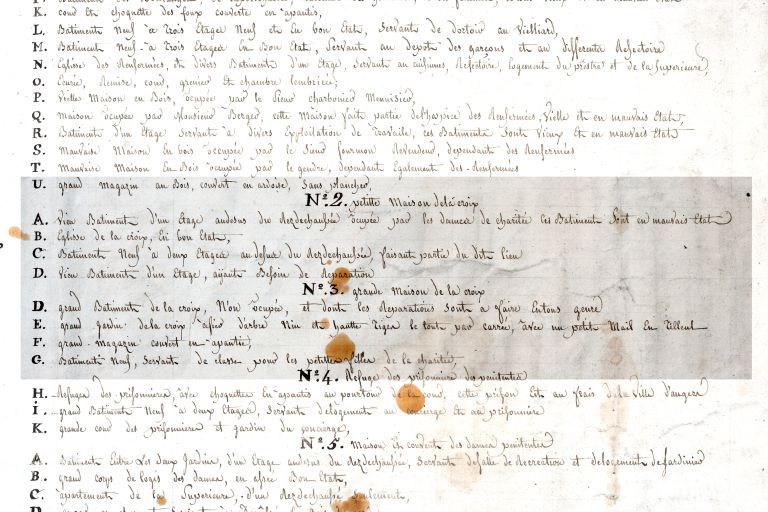 K. cour et choquette des foux couverte en apantis,
L. Batiment Neuf a Trois Etages Neuf et En bon Etat, Servant de dortoir au Vielliard,
M. Batiment Neuf a Trois Etages En Bon Etat, Servant au depot des garçons et au differents Refectoire
N. Eglise des Renfermées, et divers Batiments d'un Etage, Servant au cuisines, Refectoire, logement du prêtre et de la Superieure,
O. Ecurie, Remise, cour, grenier et chambre lembricée;
P. Vielle Maison en Bois, ocupée par le Sieur charbonier Mennisier,
Q. Maison ocupée par Monsieur Berger, cette Maison fait partie de l'hospice des Renfermées, Vielle et en mauvais Etat,
R. Batiment d'un Etage Servant a divers Exploitation de Travaile, ces Batiments Sont Vieux Et en mauvais Etat
S. Mauvaise Maison En bois occupée par le Sieur fourmon Revendeur, dependant des Renfermées
T. Mauvaise Maison En Bois ocupée par le gendre, dependant Egalement des Renfermées
U. grand Magazin en Bois, couvert en ardoise, Sans plancher,
N.º 2. petitte Maison de la croix
A. Vieu Batiment d'un Etage audesus du Rezdechaussée ocupée par les dames de charitée ces Batiment Sont en mauvais Etat
B. Eglise de la croix, En bon Etat,
C. Batiment Neuf a deux Etages au desus du Rezdechaussée, faisant partie du dit lieu
D. Vieu Batiment d'un Etage, ajiante Besoin de Reparation
N.º 3. grande Maison de la croix
D. grand Batiment de la croix, Non ocupée, et dont les Reparations Sont a faire En tous genre
E. grand Jardin de la croix, afiée d'arbre Nin et hautte Tiges le tout par carré, avec un petit Mail En Tilleul
F. grand magazin couvert en apantie,
G. Batiment Neuf, Servant de classe pour les petittes filles de la charitée,
N.º 4. Refuge des prisonniere des penitentes
H. Refuge des prisonnieres, avec choquettes En apantis au pourtour de la cour, cette prison Est au frais de la Ville d'angers
I. grand Batiment Neuf a deux Etages, Servant de logement au concierge et au prisonniere
K. grande cour des prisonnieres et jardin du concierge,
N.º 5. Maison et couvent des dames penitentes
A. Batiment Entre Les deux Jardins, d'un Etage audesus du Rezdechaussée, Servant de salle de Recreation et de logement de Jardinier
B. grand corps de logis des dames, en assée Bon Etat,
C. apartement de la Superieure, d'un Rezdechaussée Seulement,